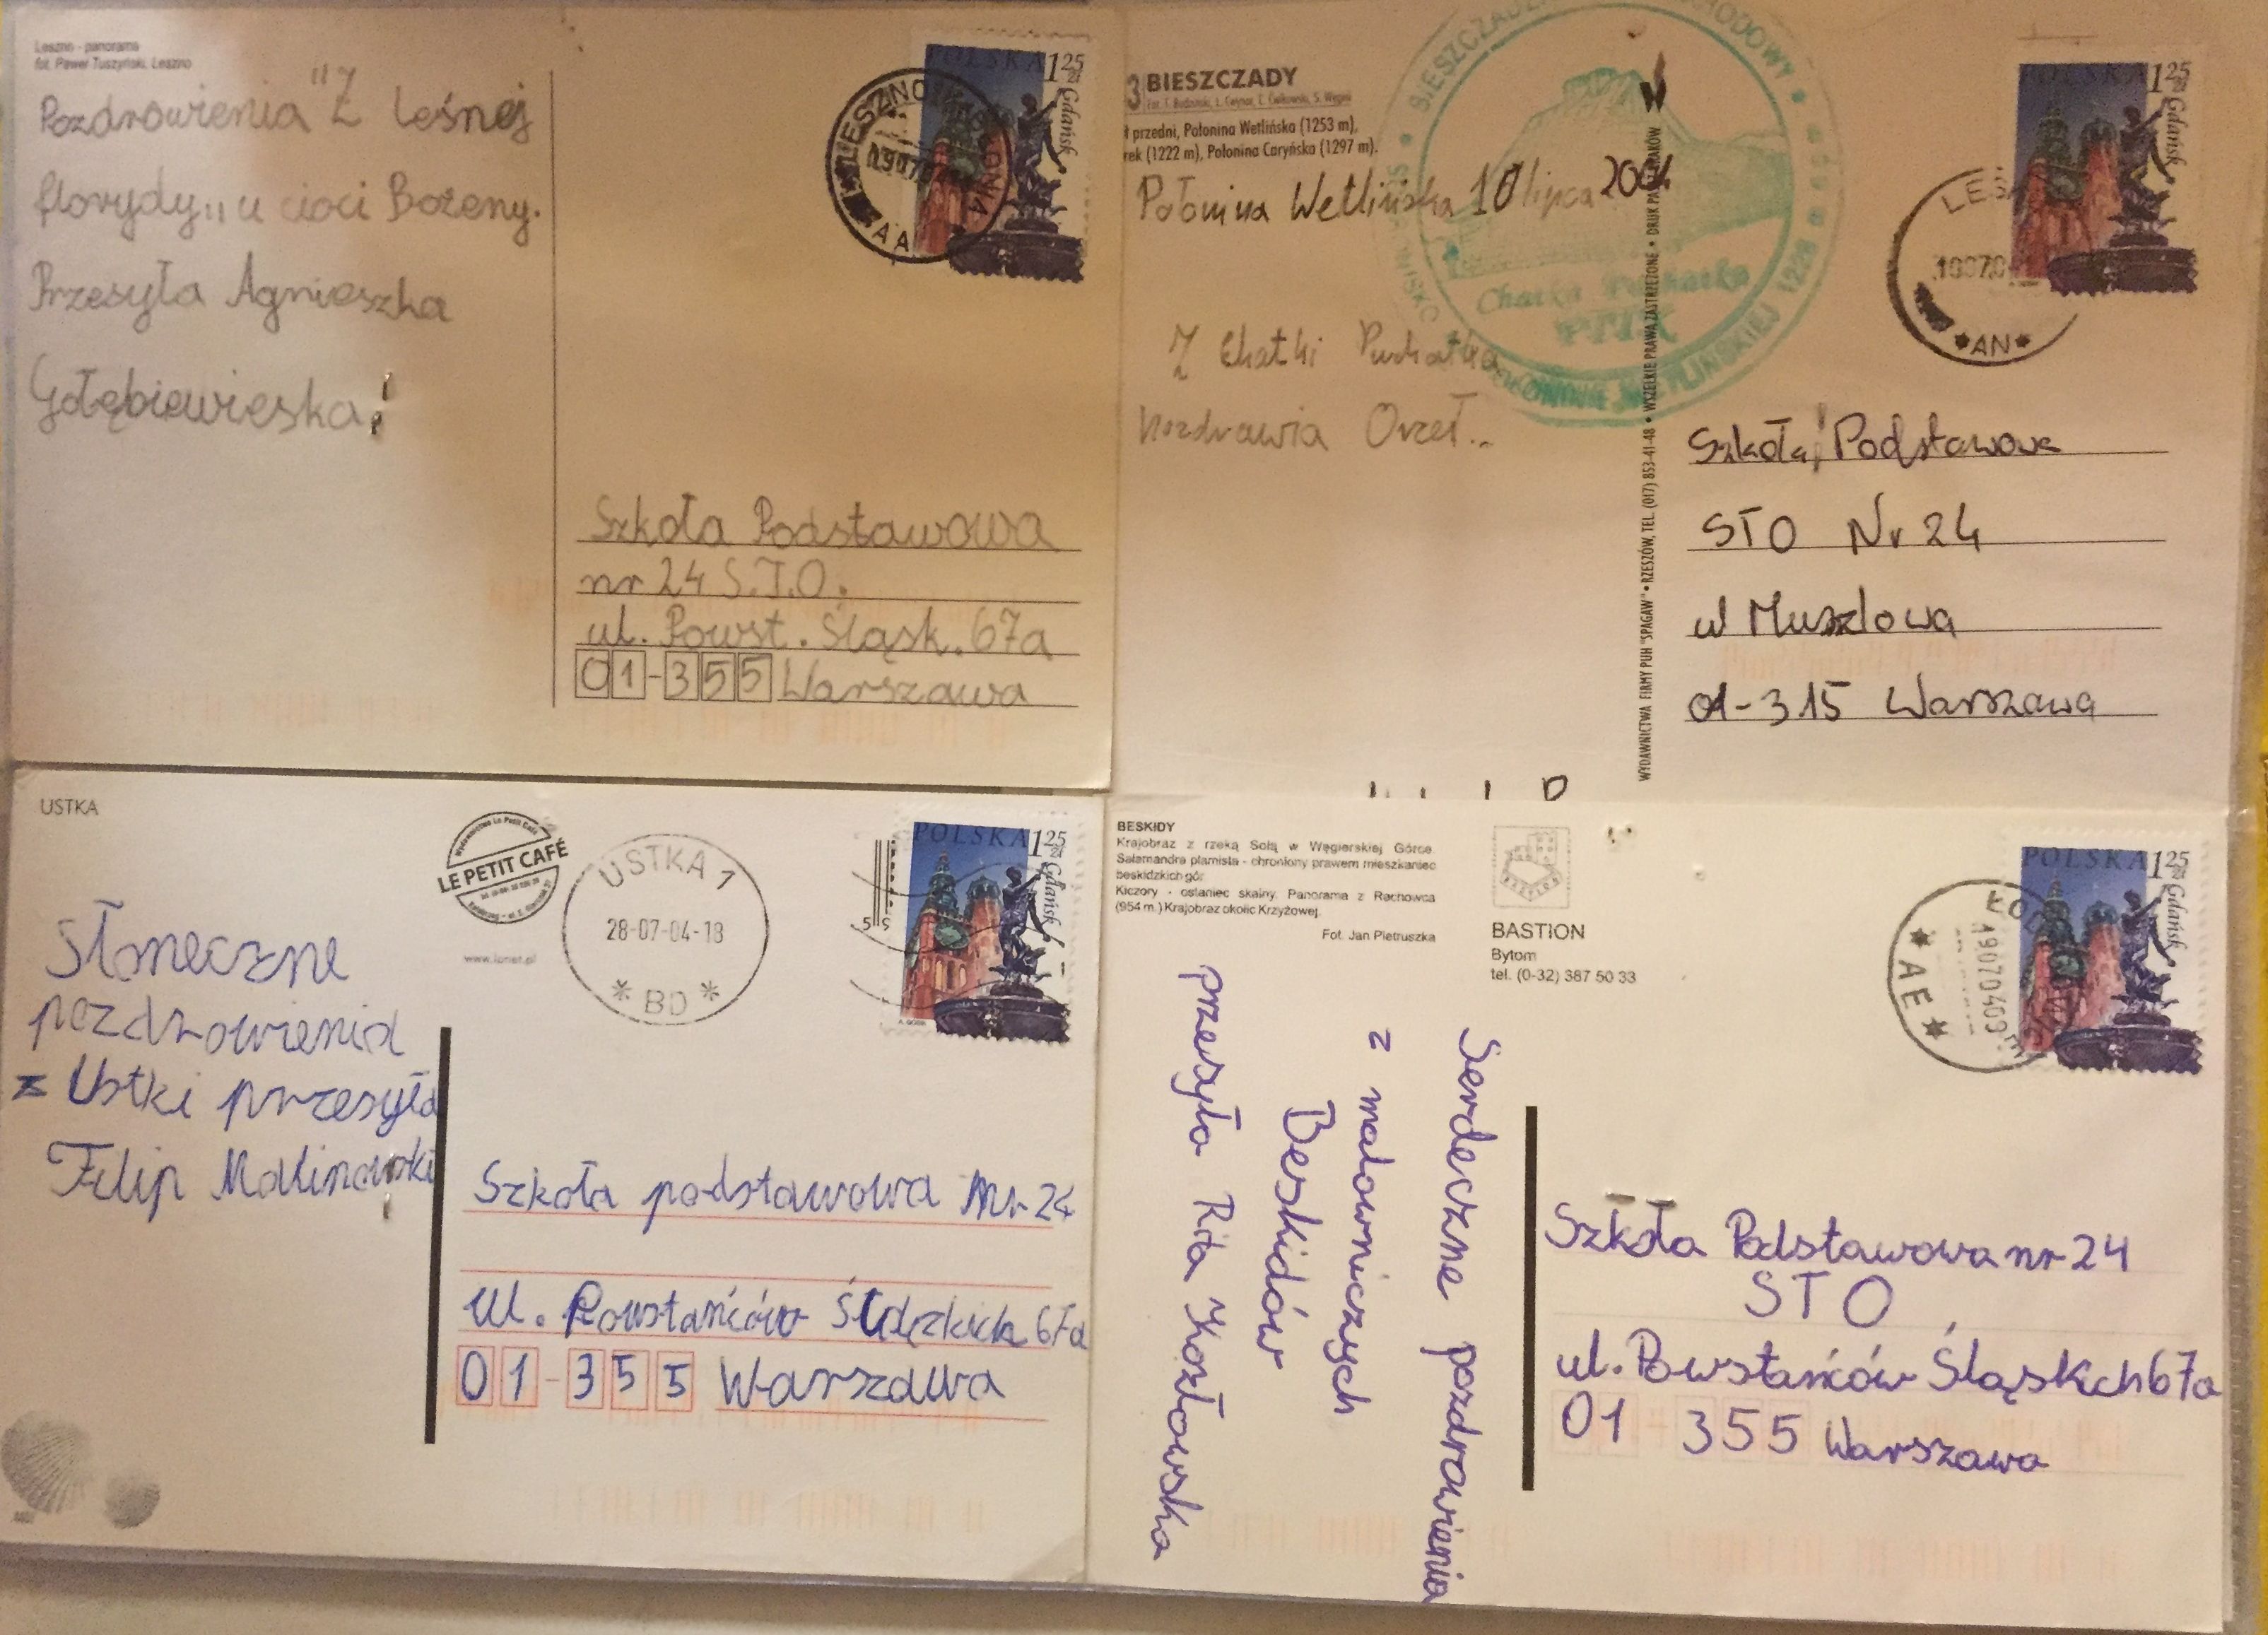 Leszno - panorama
fot. Paweł Tuszyński, Leszno
Pozdrowienia "Z leśnej
florydy" u cioci Bożeny.
Przesyła Agnieszka
Gołębiewieska
POLSKA 1 25 zł
Gdańsk
LESZNO
AA
Szkoła Podstawowa
nr 24 S.T.O.
ul. Powst. Śląsk. 67a
01-355 Warszawa
3 BIESZCZADY
przedni, Połonina Wetlińska (1253 m),
rek (1222 m), Połonina Caryńska (1297 m).
Połonina Wetlińska 10 lipca 2004
Z Chatki Puchatka
pozdrawia Orzeł..
Chatka Puchatka
PTTK
POŁONINIE WETLIŃSKIEJ 1228
WYDAWNICTWA FIRMY PUH "SPAGAW" • RZESZÓW, TEL. (017) 853-41-48 • WSZELKIE PRAWA ZASTRZEŻONE • DRUK
POLSKA 1 25 zł
Gdańsk
*AN*
Szkoła Podstawowa
STO Nr 24
ul Muszlowa
01-315 Warszawa
USTKA
LE PETIT CAFÉ
USTKA 1
28-07-04-18
* BD *
POLSKA 1 25 zł
Gdańsk
Słoneczne
pozdrowienia
z Ustki przesyła
Filip Malinowski
Szkoła podstawowa Nr 24
ul. Powstańców Śląskich 67a
01-355 Warszawa
BESKIDY
Krajobraz z rzeką Sołą w Węgierskiej Górce.
Salamandra plamista - chroniony prawem mieszkaniec
beskidzkich gór.
Kiczory - ostaniec skalny. Panorama z Rachowca
(954 m.) Krajobraz okolic Krzyżowej.
Fot. Jan Pietruszka
BASTION
Bytom
tel. (0-32) 387 50 33
POLSKA 1 25 zł
Gdańsk
* AE *
19070409
Serdeczne pozdrowienia
z malowniczych
Beskidów
przesyła Rita Kozłowska
Szkoła Podstawowa nr 24
STO
ul. Powstańców Śląskch 67a
01 355 Warszawa